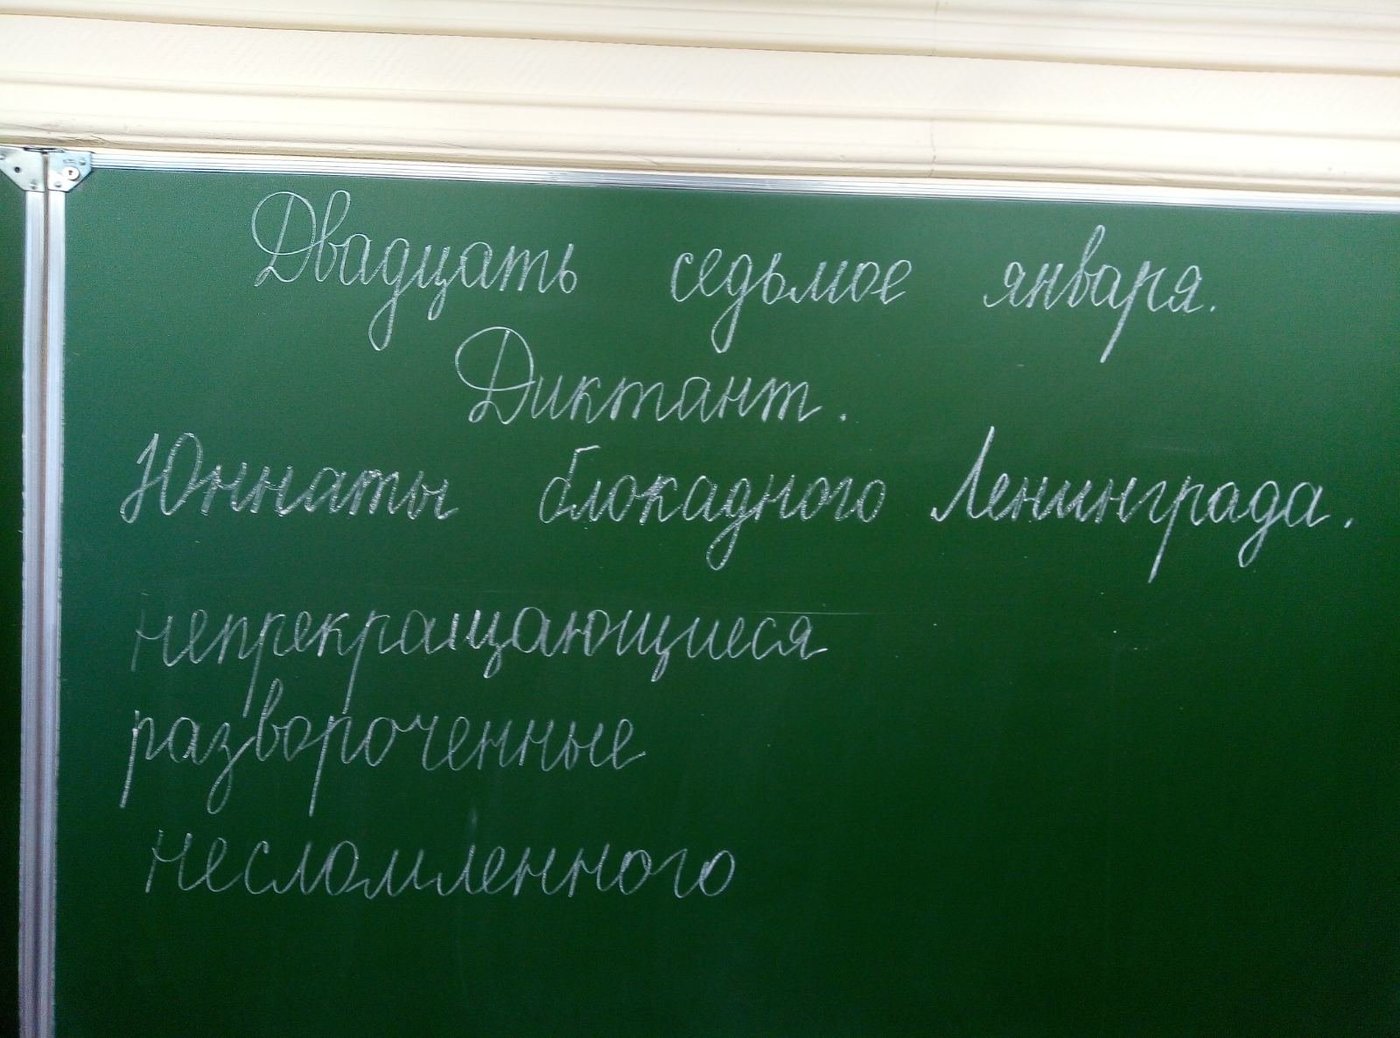 Двадцать седьмое января.
Диктант.
Юннаты блокадного Ленинграда.
непрекращающиеся
развороченные
несломленного